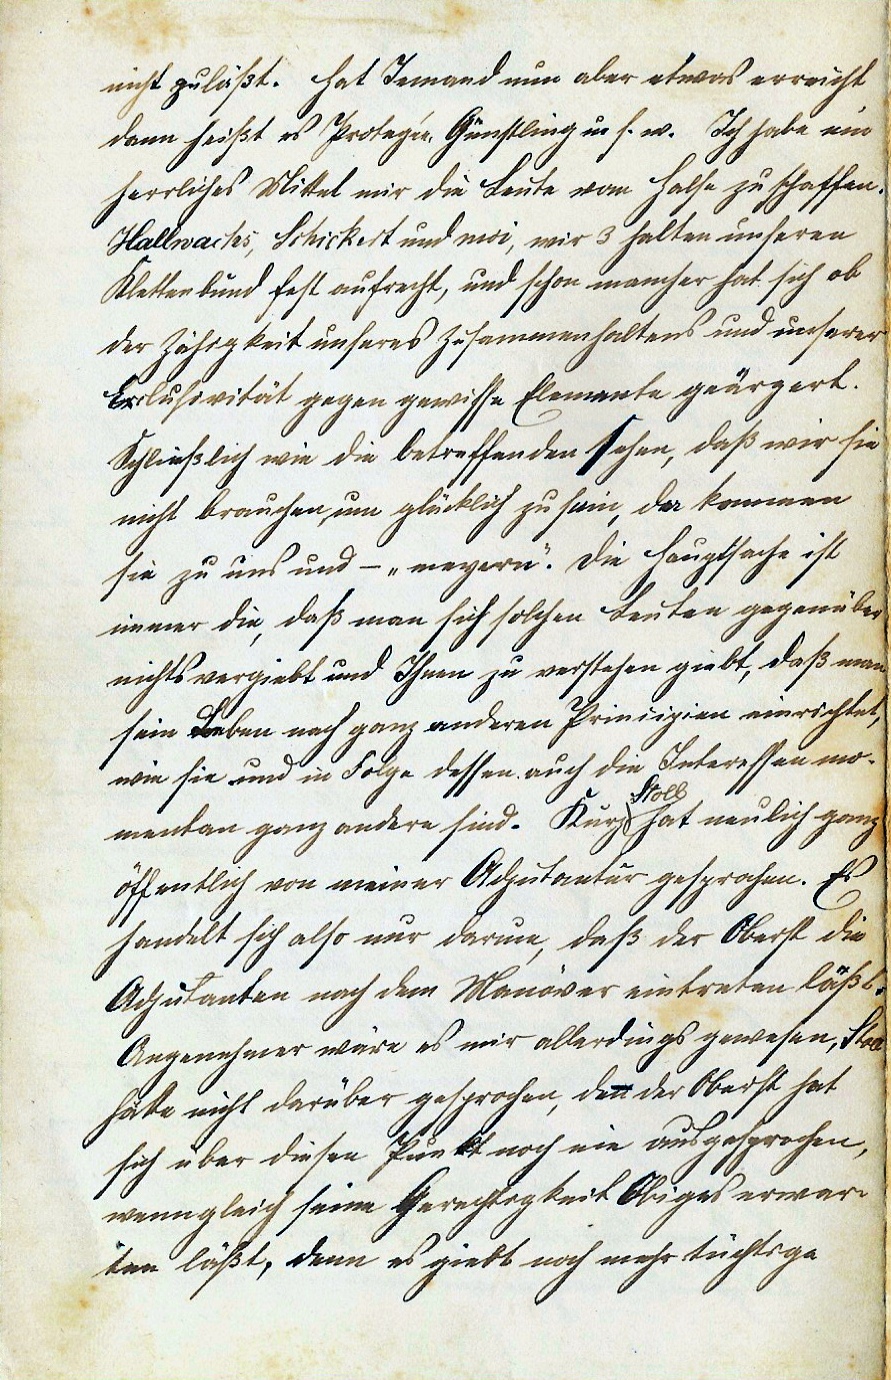 nicht zuläßt. Hat Jemand nun aber etwas erreicht
dann heißt es Protegée, Günstling u. s. w. Ich habe ein
herrliches Mittel mir die Leute vom Halse zu schaffen.
Hallwachs, Schickert und moi, wir 3 halten unseren
Klettenbund fest aufrecht, und schon mancher hat sich ob
der Zähigkeit unseres Zusammenhaltens und unserer
Exclusivität gegen gewisse Elemente geärgert.
Schließlich wie die betreffenden sehen, daß wir sie
nicht brauchen, um glücklich zu sein, da kommen
sie zu uns und – „meyern". Die Hauptsache ist
immer die, daß man sich solchen Leuten gegenüber
nichts vergiebt und Ihnen zu verstehen giebt, daß man
sein Leben nach ganz anderen Principien einrichtet,
wie sie und in Folge dessen auch die Interessen mo-
mentan ganz andere sind. Kurz Stoll hat neulich ganz
öffentlich von meiner Adjutantur gesprochen. Es
handelt sich also nur darum, daß der Oberst die
Adjutanten nach dem Manöver eintreten läßt.
Angenehmer wäre es mir allerdings gewesen, Stoll
hätte nicht darüber gesprochen, denn der Oberst hat
sich über diesen Punkt noch nie ausgesprochen,
wenngleich seine Gerechtigkeit Obiges erwar-
ten läßt, denn es giebt noch mehr tüchtige